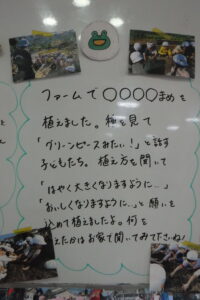 ファームで〇〇〇〇まめを
植えました。種を見て
「グリーンピースみたい!」と話す
子どもたち。植え方を聞いて
「はやく大きくなりますように…」
「おいしくなりますように…」と願いを
込めて植えましたよ。何を
えたかはお家で聞いてみて下さいね♪